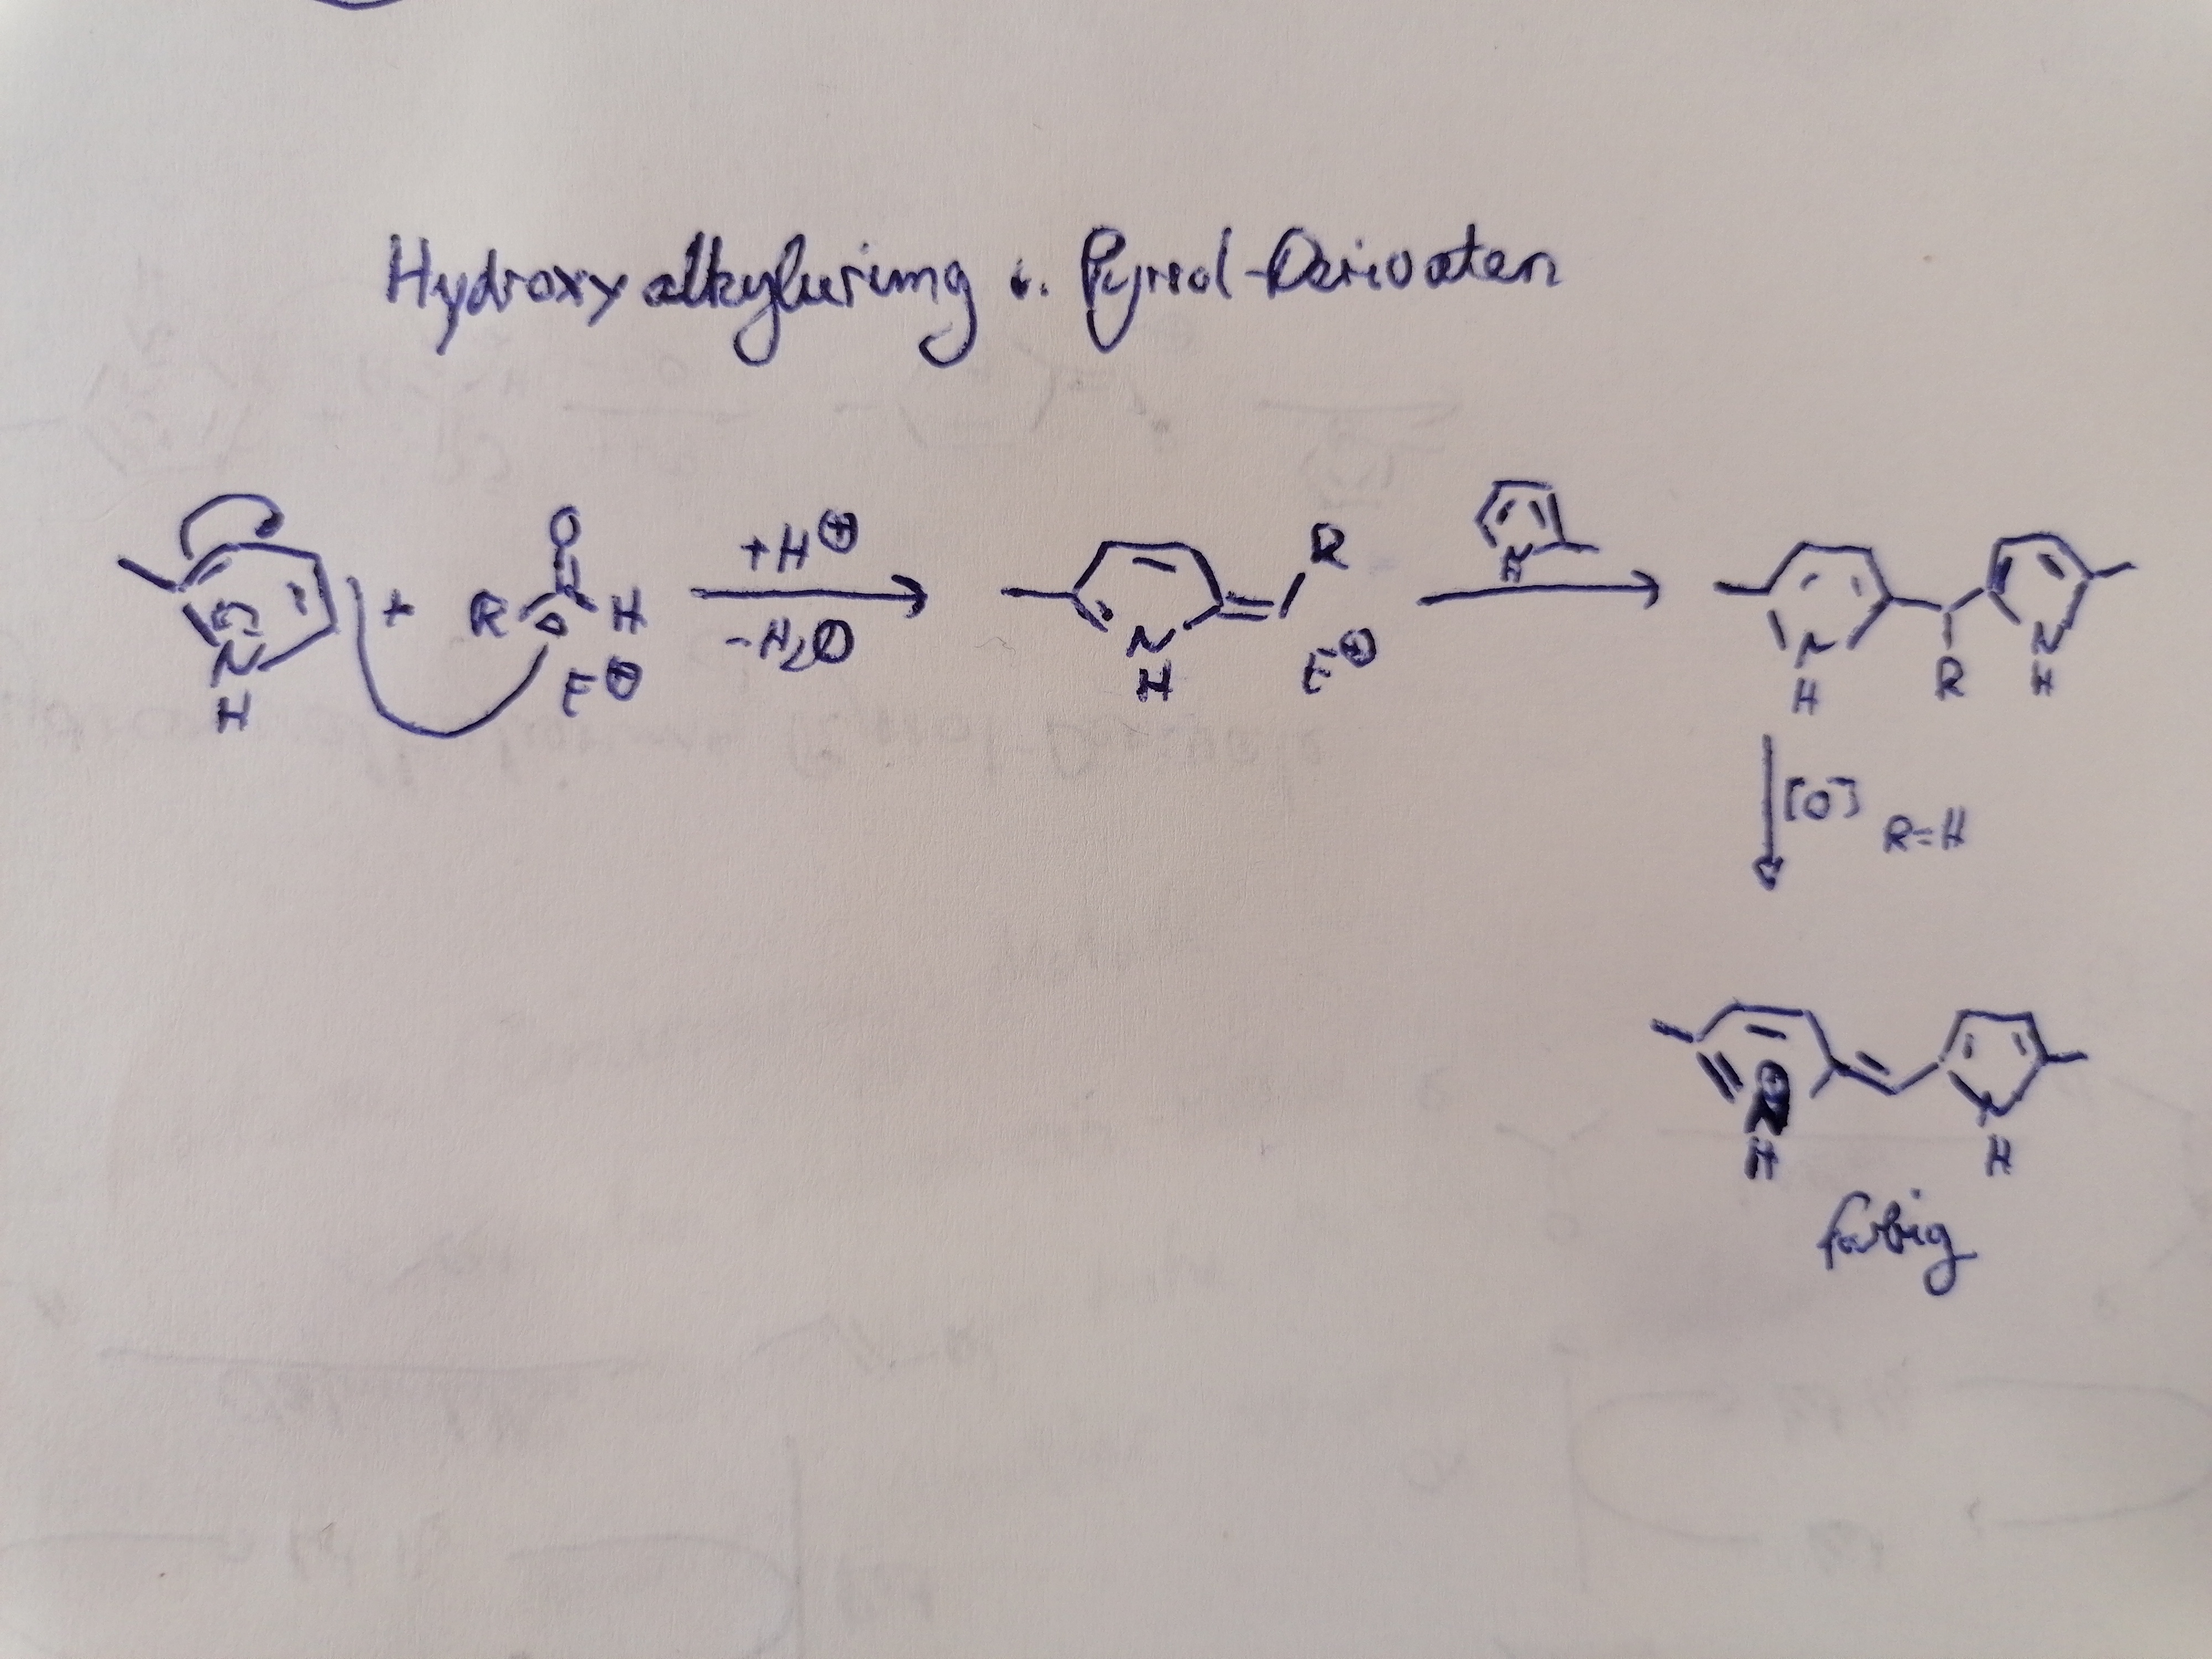 Hydroxyalkylierung v. Pyrrol-Derivaten
N H + R O H E⊕ +H⊕ -H₂O N H R E⊕ N H N H R N H
[O] R=H
N⊕ H N H
farbig